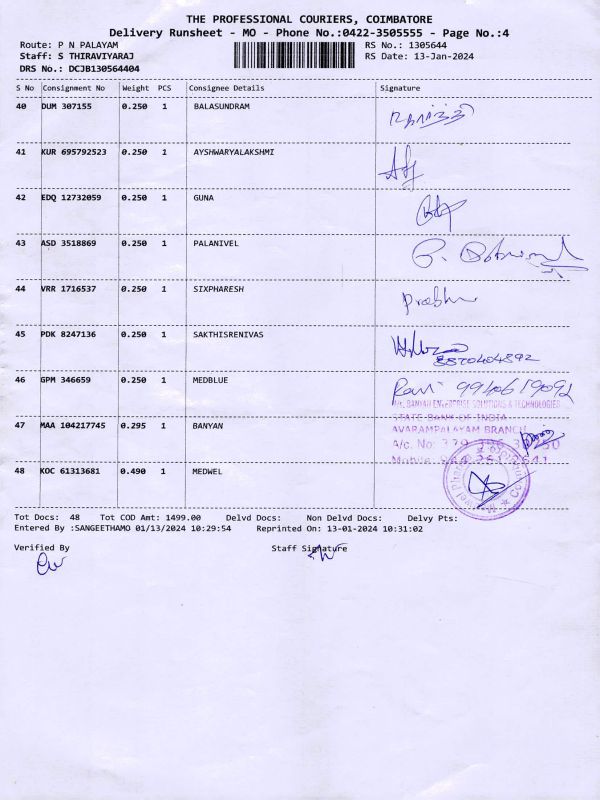 THE PROFESSIONAL COURIERS, COIMBATORE
Delivery Runsheet - MO - Phone No.:0422-3505555 - Page No.:4
Route: P N PALAYAM RS No.: 1305644
Staff: S THIRAVIYARAJ RS Date: 13-Jan-2024
DRS No.: DCJB130564404
S No Consignment No Weight PCS Consignee Details Signature
40 DUM 307155 0.250 1 BALASUNDRAM
41 KUR 695792523 0.250 1 AYSHWARYALAKSHMI
42 EDQ 12732059 0.250 1 GUNA
43 ASD 3518869 0.250 1 PALANIVEL
44 VRR 1716537 0.250 1 SIXPHARESH Prabhu
45 PDK 8247136 0.250 1 SAKTHISRENIVAS
8870404892
46 GPM 346659 0.250 1 MEDBLUE Ravi 9940619092
BANYAN ENTERPRISE SOLUTIONS & TECHNOLOGIES
STATE BANK OF INDIA
47 MAA 104217745 0.295 1 BANYAN AVARAMPALAYAM BRANCH
A/c. No:
Mobile:
48 KOC 61313681 0.490 1 MEDWEL
Tot Docs: 48 Tot COD Amt: 1499.00 Delvd Docs: Non Delvd Docs: Delvy Pts:
Entered By :SANGEETHAMO 01/13/2024 10:29:54 Reprinted On: 13-01-2024 10:31:02
Verified By Staff Signature